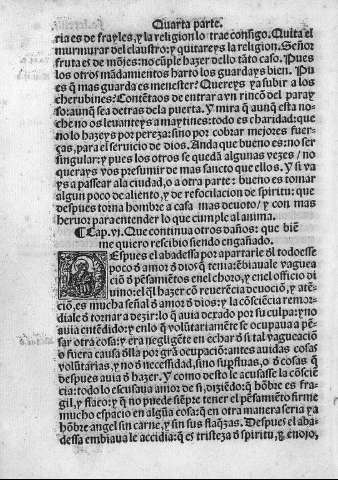 Quarta parte.
ria es de frayles, y la religion lo trae consigo. Quita el
murmurar del claustro: y quitareys la religion. Señor
fruta es de mōjes: no cūple hazer dello tāto caso. Pues
los otros mādamientos harto los guardays bien. Pu
es q̄ mas guarda es menester? Quereys ya subir a los
cherubines: Contētaos de entrar a vn rincō del paray
so: aunq̄ sea detras de la puerta. Y mira q̄ aunq̄ esta no-
che no os leuanteys a maytines: todo es charidad: que
no lo hazeys por pereza: sino por cobrar mejores fuer-
ças, para el seruicio de dios. Anda que bueno es: no ser
singular: y pues los otros se quedā algunas vezes / no
querays vos presumir de mas sancto que ellos. Y si va
ys a passear a la ciudad, o a otra parte: bueno es tomar
algun poco de aliento, y de refocilacion de spiritu: que
despues torna hombre a casa mas deuoto / y con mas
heruor para entender lo que cumple al anima.
¶ Cap. vj. Que continua otros daños: que biē
me quiero rescibio siendo engañado.
DEspues el abadessa por apartarle ōl todo esse
poco ō amor ō dios q̄ tenia: ēbiauale vaguea
ciō ō pēsamiētos en el choro, y en el officio di
uino: el q̄l hazer cō reuerēcia deuociō, y atē-
ciō, es mucha señal ō amor ō dios: y la cōsciēcia remor-
diale ō tornar a dezir: lo q̄ auia dexado por su culpa: y no
auia entēdido: y en lo q̄ volūtariamēte se ocupaua a pē-
sar otra cosa: y era negligēte en echar ō si tal vagueaciō
ō fuera causa ōlla por grā ocupaciō: antes auidas cosas
volūtarias, y no ō necessidad, sino supfluas, o ō cosas q̄
despues auia ō hazer. Y como desto le acusasse la cōsciē
cia: todo lo escusaua amor de si, diziēdo: q̄ hōbre es fra-
gil, y flaco: y q̄ no puede siēpre tener el pēsamiēto firme
mucho espacio en algūa cosa: q̄ en otra manera seria ya
hōbre angel sin carne, y sin sus flaq̄zas. Despues el aba-
dessa embiaua le accidia: q̄ es tristeza ō spiritu, q̄ enojo,